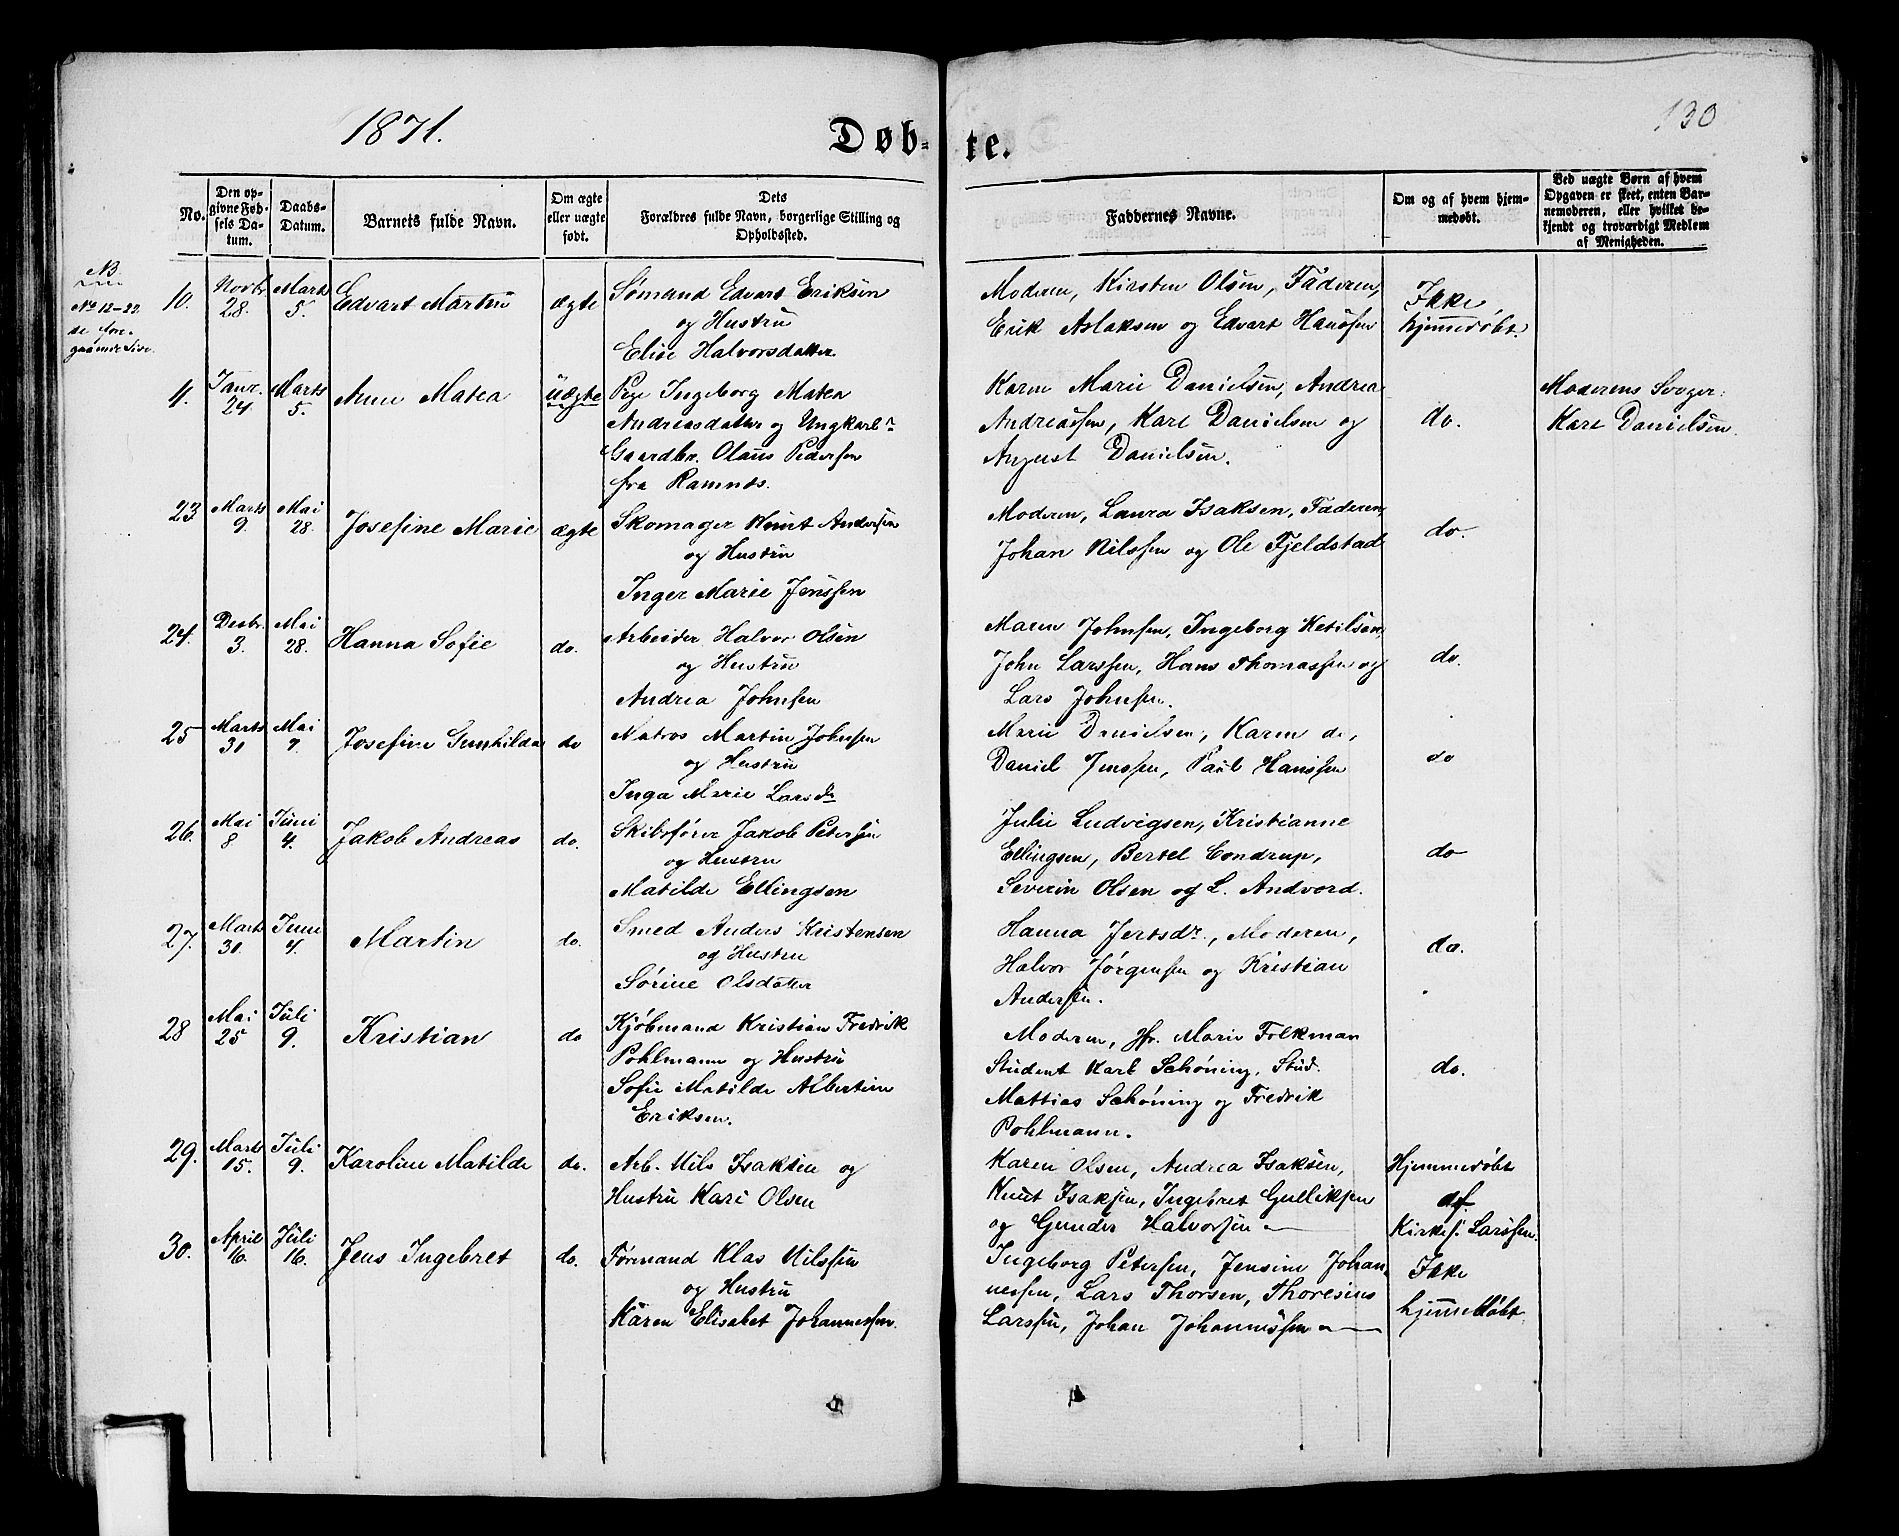 1871.
Døb-te.
130
No.
Den op-
givne Fød-
sels Da-
tum.
Daabs-
Datum.
Barnets fulde Navn.
Om ægte
eller uægte
født.
Dets
Forældres fulde Navn, borgerlige Stilling og
Opholdssted.
Faddernes Navne.
Om og af hvem hjem-
medøbt.
Ved uægte Børn af hvem
Opgaven er skeet, enten Bar-
nemoderen, eller hvilket be-
kjendt og troværdigt Medlem
af Menigheden.
NB
No 12-22
se fore-
gaaende Side.
10.
Novbr
28.
Marts
5.
Edvart Martin
ægte
Sømand Edvart Eriksen
og Hustru
Elise Halvorsdatter.
Moderen, Kirsten Olsen, Faderen,
Erik Aslaksen og Edvart Hansen
Ikke
hjemmedøbt.
11.
Janr.
24.
Marts
5.
Anne Matea
Uægte
Pige Ingeborg Matea
Andreasdatter og Ungkarl
Gaardbr. Olaus Pedersen
fra Ramnes.
Karen Marie Danielsen, Andrea
Andreassen, Karl Danielsen og
August Danielsen.
do.
Moderens Svoger:
Karl Danielsen.
23.
Marts
9.
Mai
28.
Josefine Marie
ægte
Skomager Knut Andersen
og Hustru
Inger Marie Jenssen
Moderen, Laura Isaksen, Faderen,
Johan Nilssen og Ole Fjeldstad
do.
24.
Decbr.
3.
Mai
28.
Hanna Sofie
do.
Arbeider Halvor Olsen
og Hustru
Andrea Johnsen
Maren Johnsen, Ingeborg Ketilsen,
John Larssen, Hans Thomassen og
Lars Johnsen.
do.
25
Marts
30
Mai
7.
Josefine Gunhilda
do
Matros Martin Johnsen
og Hustru
Inga Marie Larsdr
Marie Danielsen, Karen do,
Daniel Jenssen, Paul Hanssen
do
26.
Mai
8
Juni
4.
Jakob Andreas
do.
Skibsfører Jakob Petersen
og Hustru
Matilde Ellingsen
Julie Ludvigsen, Kristianne
Ellingsen, Bertel Condrup,
Severin Olsen og L. Andvord.
do
27.
Marts
30.
Juni
4.
Martin
do.
Smed Anders Kristensen
og Hustru
Sørine Olsdatter
Hanna Jertsdr., Moderen,
Halvor Jørgensen og Kristian
Andersen.
do.
28
Mai
25
Juli
9.
Kristian
do
Kjøbmand Kristian Fredrik
Pohlmann og Hustru
Sofie Matilde Albertine
Eriksen.
Moderen, Jfr. Marie Folkman
Student Karl Schöning, Stud.
Mattias Schöning og Fredrik
Pohlmann.
do.
29.
Marts
15.
Juli
9.
Karoline Matilde
do.
Arb. Nils Isaksen og
Hustru Kari Olsen
Karen Olsen, Andrea Isaksen,
Knut Isaksen, Ingebret Gulliksen
og Gunder Halvorsen
Hjemmedøbt
af
Kirkes. Larssen.
30.
April
16.
Juli
16.
Jens Ingebret
do.
Formand Klas Nilssen
og Hustru
Karen Elisabet Johannessen.
Ingeborg Petersen, Jensine Johan-
nessen, Lars Thorsen, Thoresius
Larssen, Johan Johannessen
Ikke
hjemmedøbt.